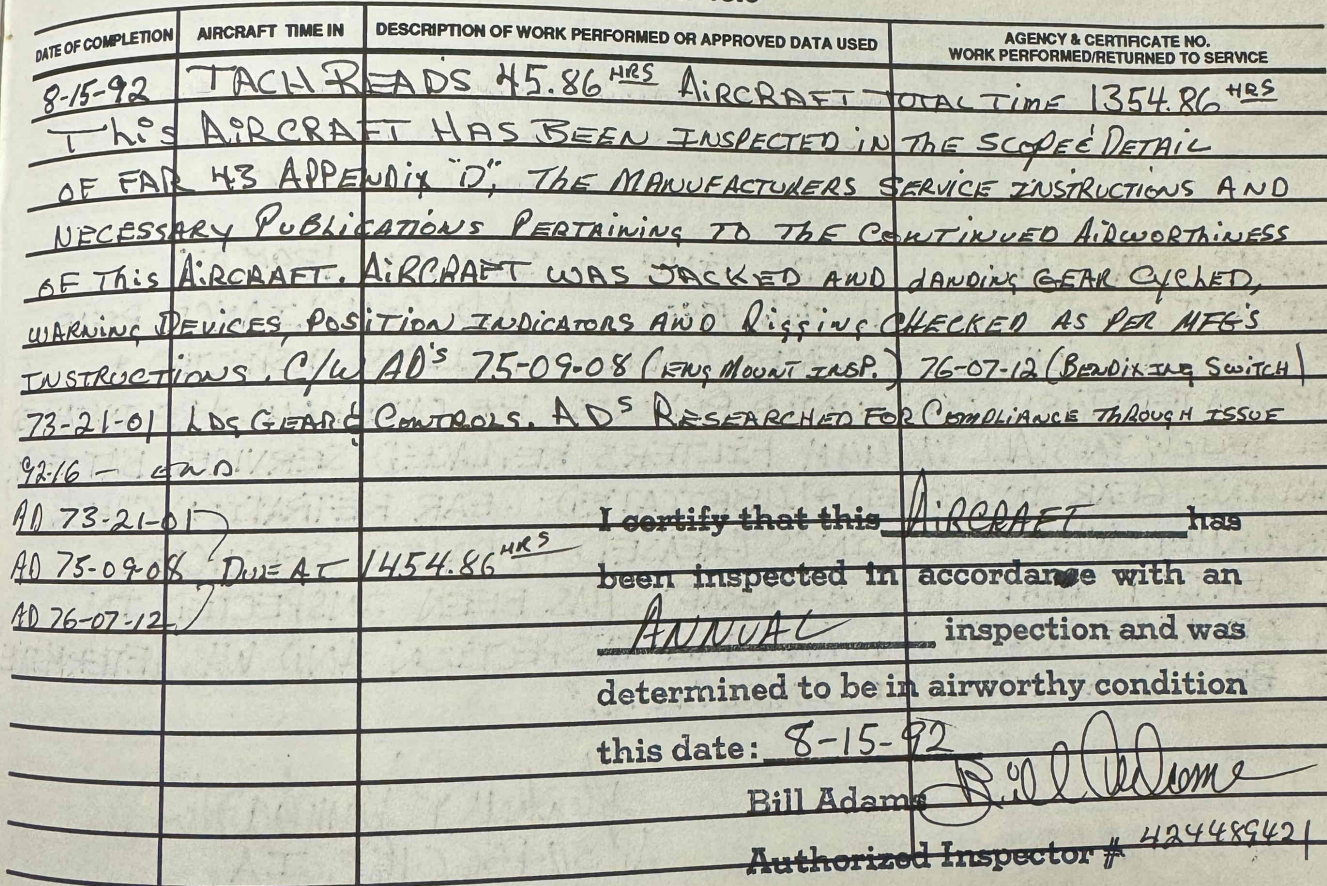 DATE OF COMPLETION AIRCRAFT TIME IN DESCRIPTION OF WORK PERFORMED OR APPROVED DATA USED AGENCY & CERTIFICATE NO.
WORK PERFORMED/RETURNED TO SERVICE
8-15-92 TACH READS 45.86 HRS AIRCRAFT TOTAL TIME 1354.86 HRS
This AIRCRAFT HAS BEEN INSPECTED IN The SCOPE & DETAIL
OF FAR 43 APPENDIX "D", THE MANUFACTURERS SERVICE INSTRUCTIONS AND
NECESSARY PUBLICATIONS PERTAINING TO THE CONTINUED AIRWORTHINESS
OF This AIRCRAFT. AIRCRAFT WAS JACKED AND LANDING GEAR CYCLED,
WARNING DEVICES, POSITION INDICATORS AND Rigging CHECKED AS PER MFG'S
INSTRUCTIONS. C/W AD'S 75-09-08 (ENG MOUNT INSP.) 76-07-12 (BENDIX IGN SWITCH)
73-21-01 LDG GEAR & CONTROLS. ADS RESEARCHED FOR COMPLIANCE THROUGH ISSUE
92-16 - END
AD 73-21-01
I certify that this AIRCRAFT has
AD 75-09-08 DUE AT 1454.86 HRS
been inspected in accordance with an
AD 76-07-12
ANNUAL inspection and was
determined to be in airworthy condition
this date: 8-15-92
Bill Adams Bill Adams
Authorized Inspector # 424489421